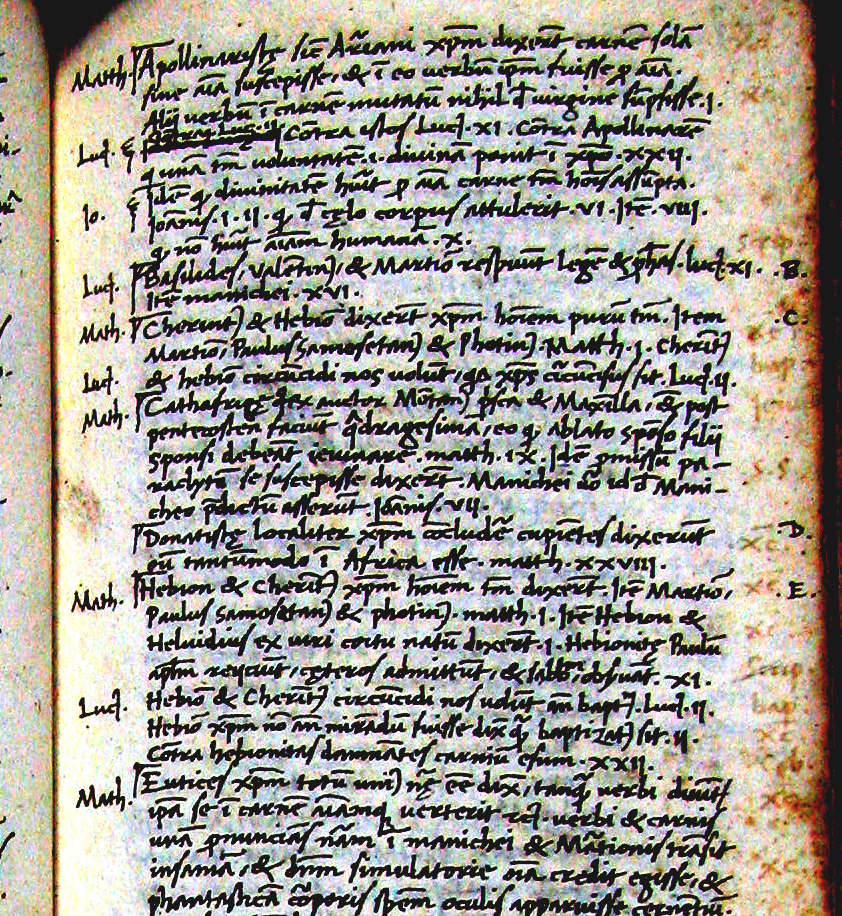 Matth. Apollinaristę sic̄ Arriani xp̄m dixerūt carnē solā
sine aīa suscepisse, & ī eo uerbū ip̄m fuisse p̱ aīa.
Alij uerbū ī carnē mutatū nihil d̄ uirgine sūpsisse .j.
Luc̨. Cōtra istos Luc̨. XI. Cōtra Apollinarē
q̨ unā tm̄ uoluntatē .i. diuinā ponit ī xp̄o. XXIJ.
Idē q̨ diuinitatē huīt p̱ aīa carne tm̄ hoīs assūpta.
Io. Ioānis. I. II. q̨ d̄ cęlo corpus attulerit. VI. Itē. VIII.
q̨ nō huīt aīam humanā. X.
Luc̨. Basilides, Valentin⁹, & Martiō respuūt legē & p̱has. luc̨. XI. .B.
Itē manichei. XVI.
Math. Cherint⁹ & Hebiō dixerūt xp̄m hoīem purū tm̄. Item .C.
Martiō, Paulus samosetan⁹ & Photin⁹. Matth. j. Cherīt⁹
Luc̨. & hebiō circūcidi nos uolūt, qa xp̄s circūcisus sit. Luc̨. IJ.
Math. Cathafrigę auctor Mōtan⁹ p̄sca & Maxilla, & post
pentecosten faciūt q̄dragesimā, eo q̨ ablato spōso filij
sponsi debeāt ieiunare. matth. IX. Idē p̱missū pa-
raclytū se suscepisse dixerūt. Manichei ůo id d̄ Mani-
cheo p̄dictū asserūt Ioānis. VII.
Donatistę localiter xp̄m cōcludē cupiētes dixerūt .D.
eū tantūmodo ī Africa esse. matth. XXVIII.
Math. Hebion & Cherīt⁹ xp̄m hoīem tm̄ dixerūt. Itē Martiō, .E.
Paulus samosetan⁹ & photin⁹. matth. j. Itē Hebion &
Heluidius ex uiri coitu natū dixerūt. j. Hebionitę Paulū
ap̄tm reijciūt, cęteros admittūt, & sabb̄m obsuāt. XI.
Luc̨. Hebiō & Cherīt⁹ circūcidi nos uolūt añ bapt⁹. Luc̨. IJ.
Hebiō xp̄m nō añ mirādū fuisse dix̄ q̄ baptizat⁹ sit. IJ.
Cōtra hebionitas damnātes carniū esum. XXII.
Math. Eutices xp̄m totū uni⁹ nr̨ę eē dix̄, tanq̄ uerbi diuīt
ipā se ī carnē aīamq̨ uerterit uerbi & carnis
unā p̱nuncias nām ī manichei & Mārtionis trāsit
insaniā, & dn̄m simulatorie oīa credit egisse, &
phantasticā cōporis spēm oculis apparuisse cernētiū.